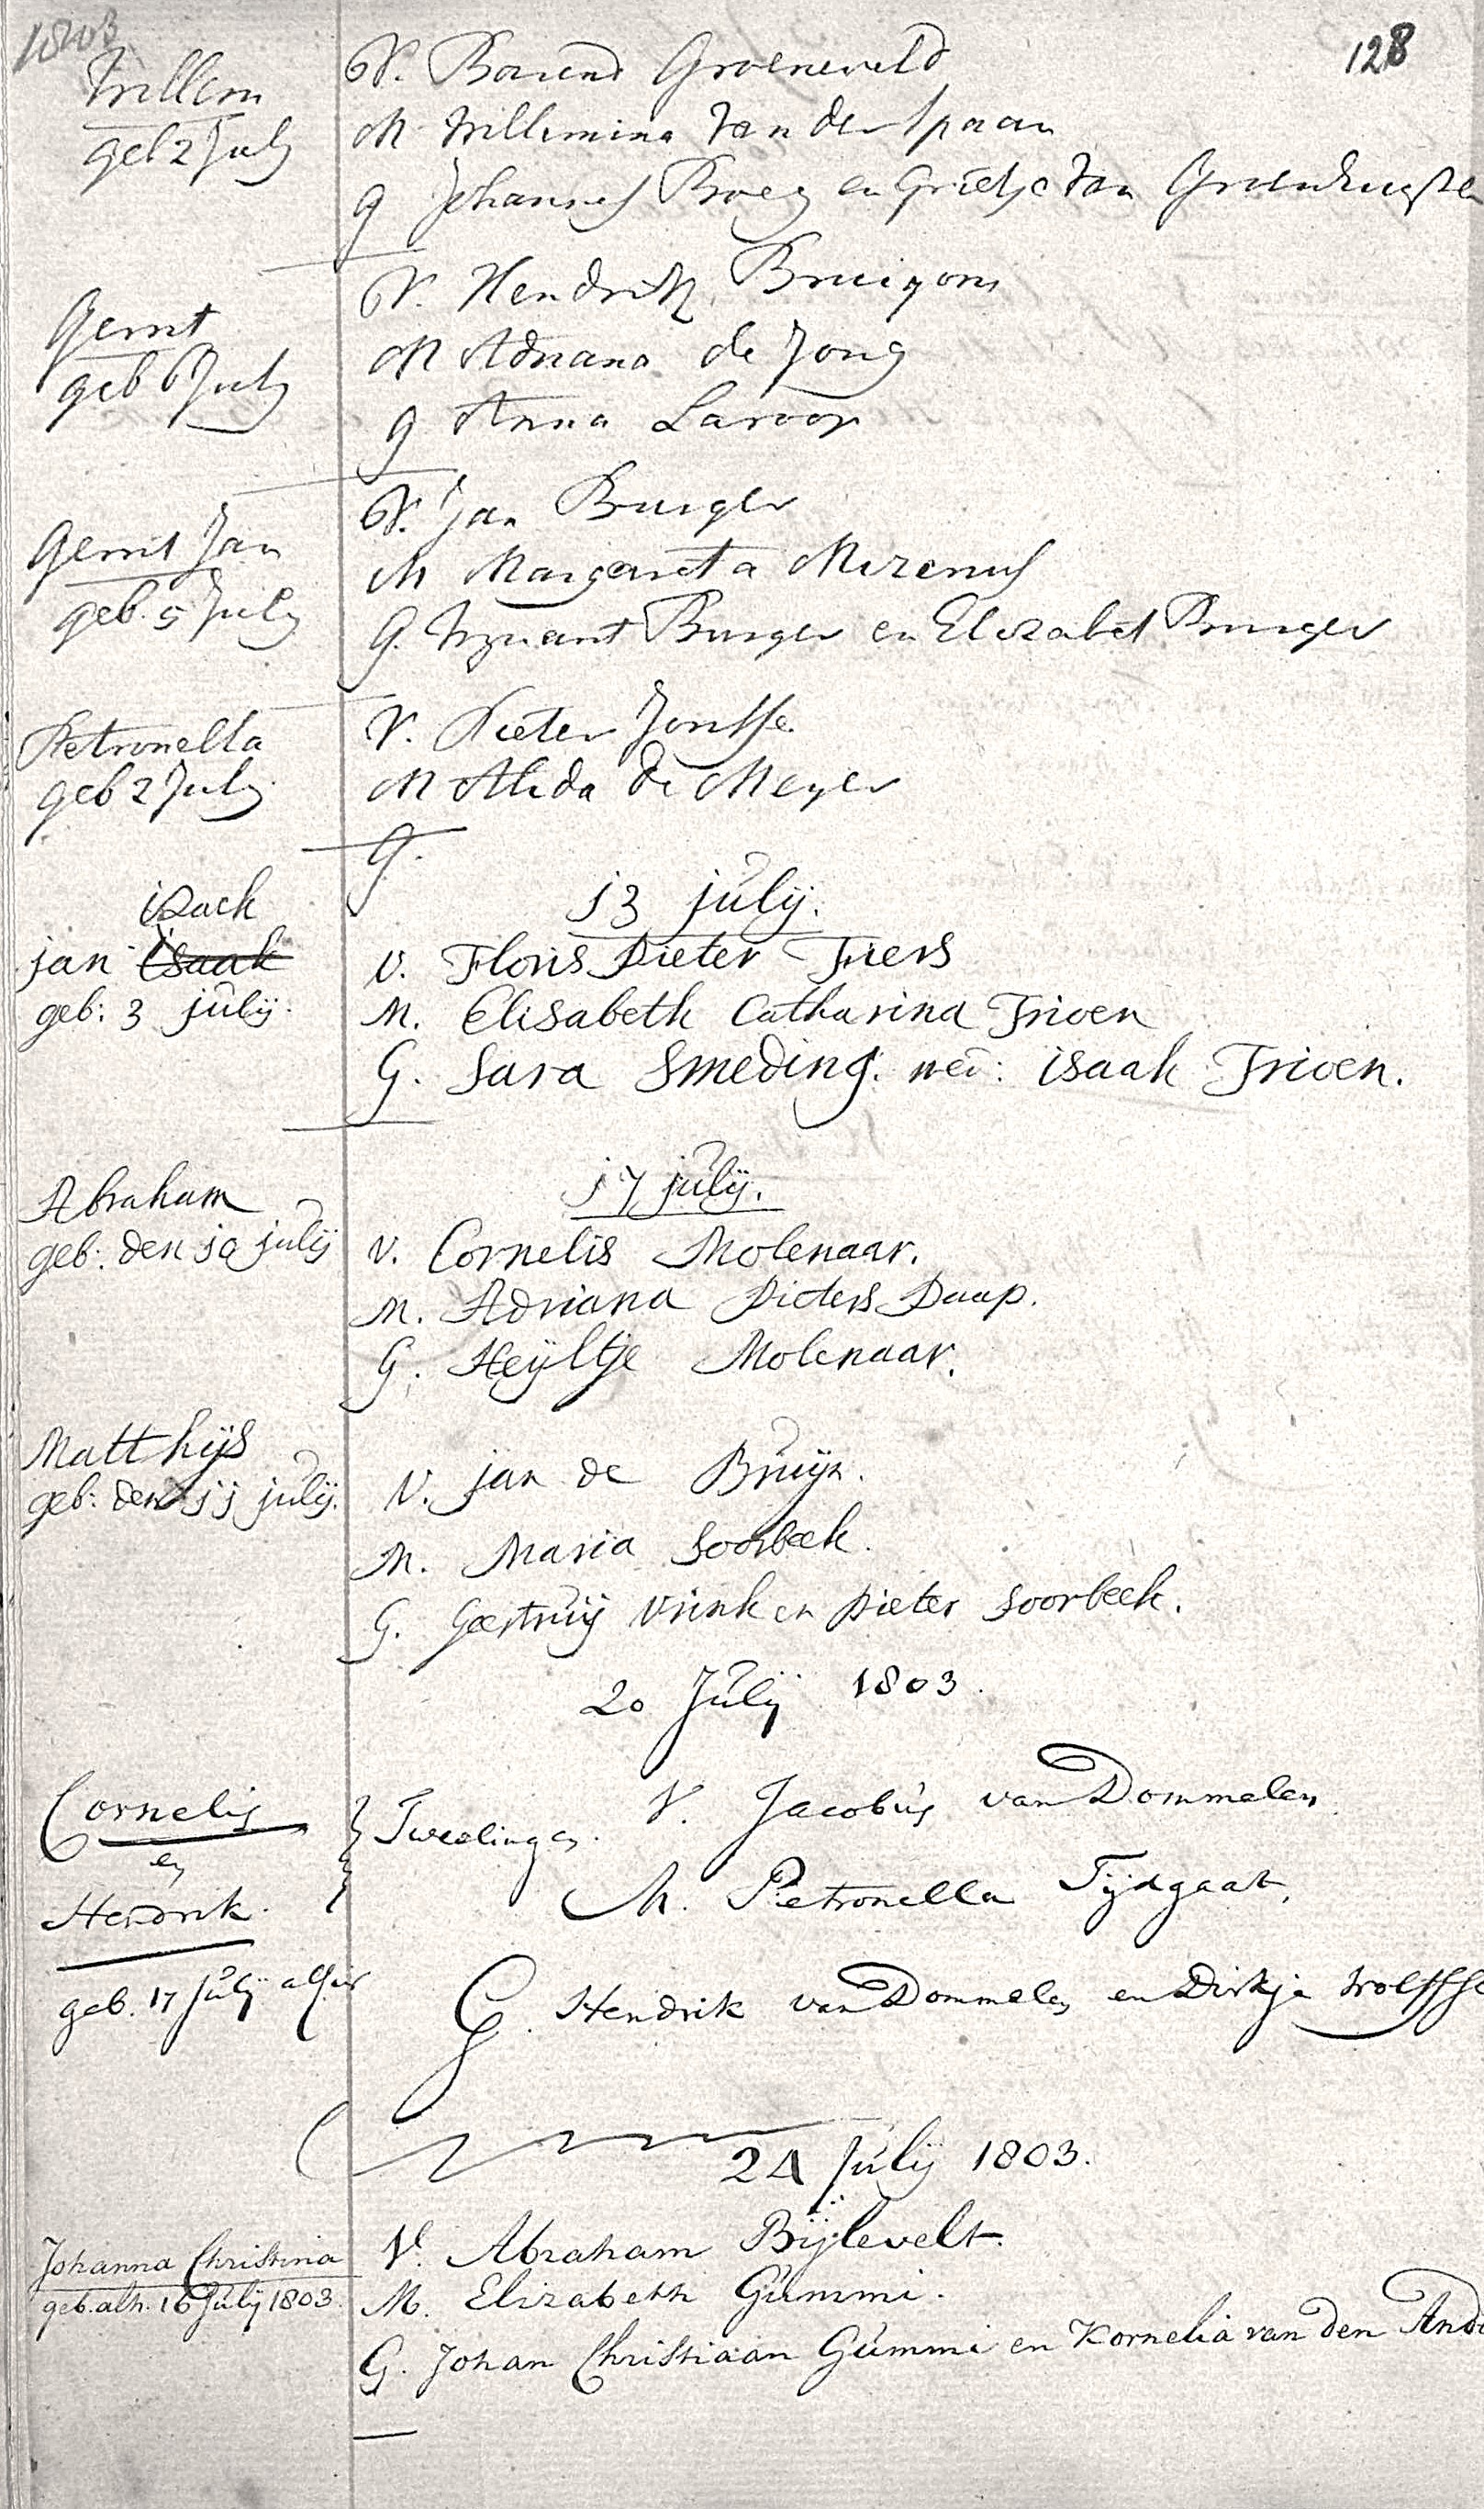 1803
128
Willem
geb 2 July
V. Barend Groeneveld
M Willemina van der Spaan
g Johannes Boeg en Grietje van
Gerrit
geb 6 July
V. Hendrik Bruigom
M Adriana de Jong
g Anna Laroop
Gerrit Jan
geb. 5 July
V. Jan Burger
M Margareta Mirenus
G. Wynant Burger en Elizabet Burger
Petronella
geb 2 July
V. Pieter Jonsse.
M Alida de Meyer
G.
13 julij.
isack
jan isaak
geb: 3 julij.
V. Floris Pieter Friers
M. Elisabeth Catharina Trioen
G. Sara Smeding. wed: isaak Trioen.
17 julij.
Abraham
geb: den 10 julij
V. Cornelis Molenaar.
M. Adriana Pieters Paap.
G. Heijltje Molenaar.
Matthijs
geb: den 11 julij.
V. jan de Bruijn.
M. Maria Soorbeek.
G. Geertruij Vrink en Pieter Soorbeek.
20 Julij 1803.
Cornelis
en
Hendrik.
geb. 17 Julij alhier
Tweelingen.
V. Jacobus van Dommelen
M. Petronella Tijdgaat.
G. Hendrik van Dommelen en Dirkje
24 Julij 1803.
Johanna Christina
geb. alh. 16 Julij 1803.
V. Abraham Bijlevelt.
M. Elizabeth Gummi.
G. Johan Christiaan Gummi en Kornelia van den